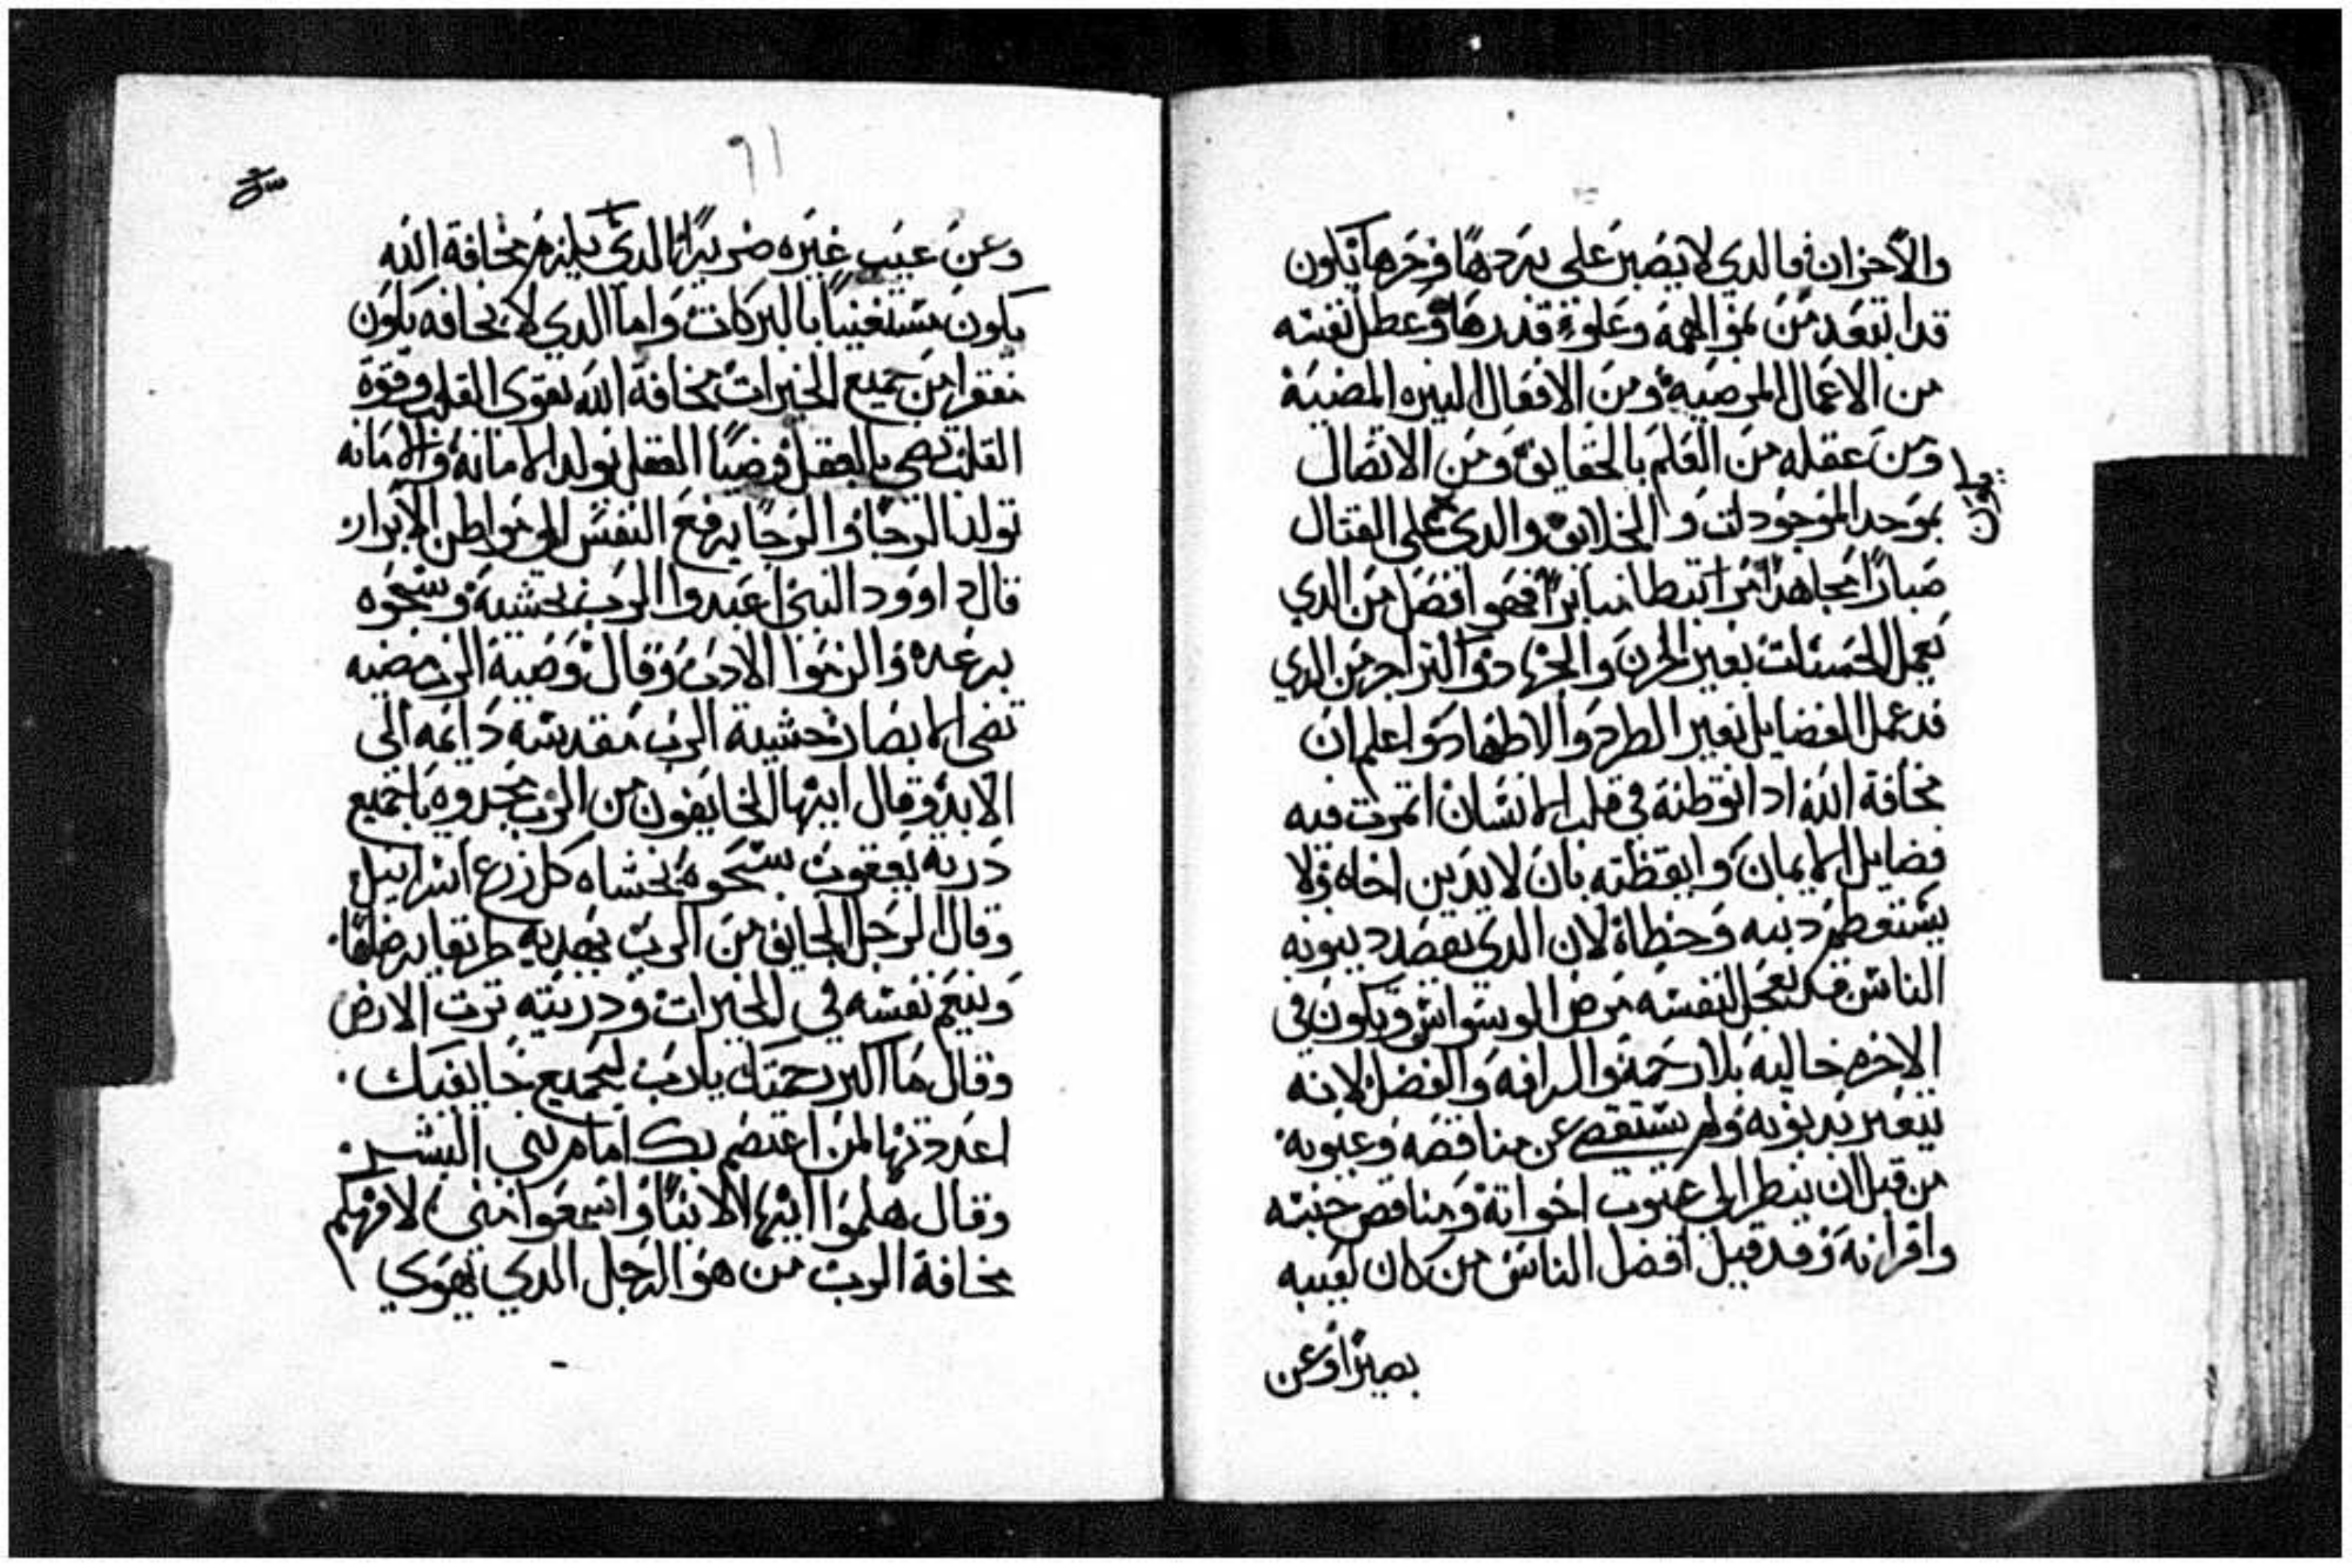 والاحزان فالدي لا يصبر على بردها وحرها يكون
قد ابتعد من نمو الهمه وعلوء قدرها وعطل نفسه
من الاعمال المرضيه ومن الافعال النيره المضيية
ومن عقله من العلم بالحقايق ومن الاتصال
بموحد الموجودات والخلايق والدي على القتال
يكون
صبارًا مجاهدًا مرابتطا مباترًا فهو افضل من الدي
يعمل الحسنات بغير الحزن والجهاد والتراجر من الدي
قد عمل الفضايل بغير الطرد والاظطهاد واعلم ان
مخافة الله ادا توطنة في قلب الانسان اتمرت فيه
فضايل الايمان وايقظته بان لا يدين اخاه ولا
يستعظم دنبه وخطاه لان الدي يقصد دينونه
الناس فلنفسه مرض الوسواس ويكون في
الاخره خاليه بلا رحمه والرافه والفضل لانه
يتعير بديونه ولم يستقصي عن مناقصه وعيوبه
من قبل ان ينظر الي عيوب اخواتة ومناقص جنسه
واقرانه وقد قيل افضل الناس من كان لعيبه
بصيرًا وعن
٦١
وعن عيب غيره ضريرًا الدي يلزم مخافة الله
يكون مستغنيًا بالبركات واما الدي لا يخافه يكون
مفتقرا من جميع الخيرات مخافة الله تقوي القلب وقوة
القلب تضي بالعقل وضيًا العقل تولد الامانة والامانه
تولد الرجا والرجا يرفع النفس الي مواطن الابرار
قال داوود النبي اعبدوا الرب بخشية وسبحوه
برعده والزموا الادب وقال وصية الرب مضيه
تضي الابصار خشية الرب مقدسه دايمه الي
الابد وقال ايها الخايفون من الرب مجدوه يا جميع
درية يعقوب سبحوه يخشاه كل زرع اسراييل
وقال الرجل الخايف من الرب يهديه طريقا يرضاها
وينيم نفسه في الخيرات ودريته ترت الارض
وقال ما اكبر رحمتك يارب لجميع خايفيك
اعددتها لمن اعتصم بك امام بني البشر
وقال هلموا ايها الابنا واسمعوا مني لافهمكم
مخافة الرب من هو الرجل الدي يهوي